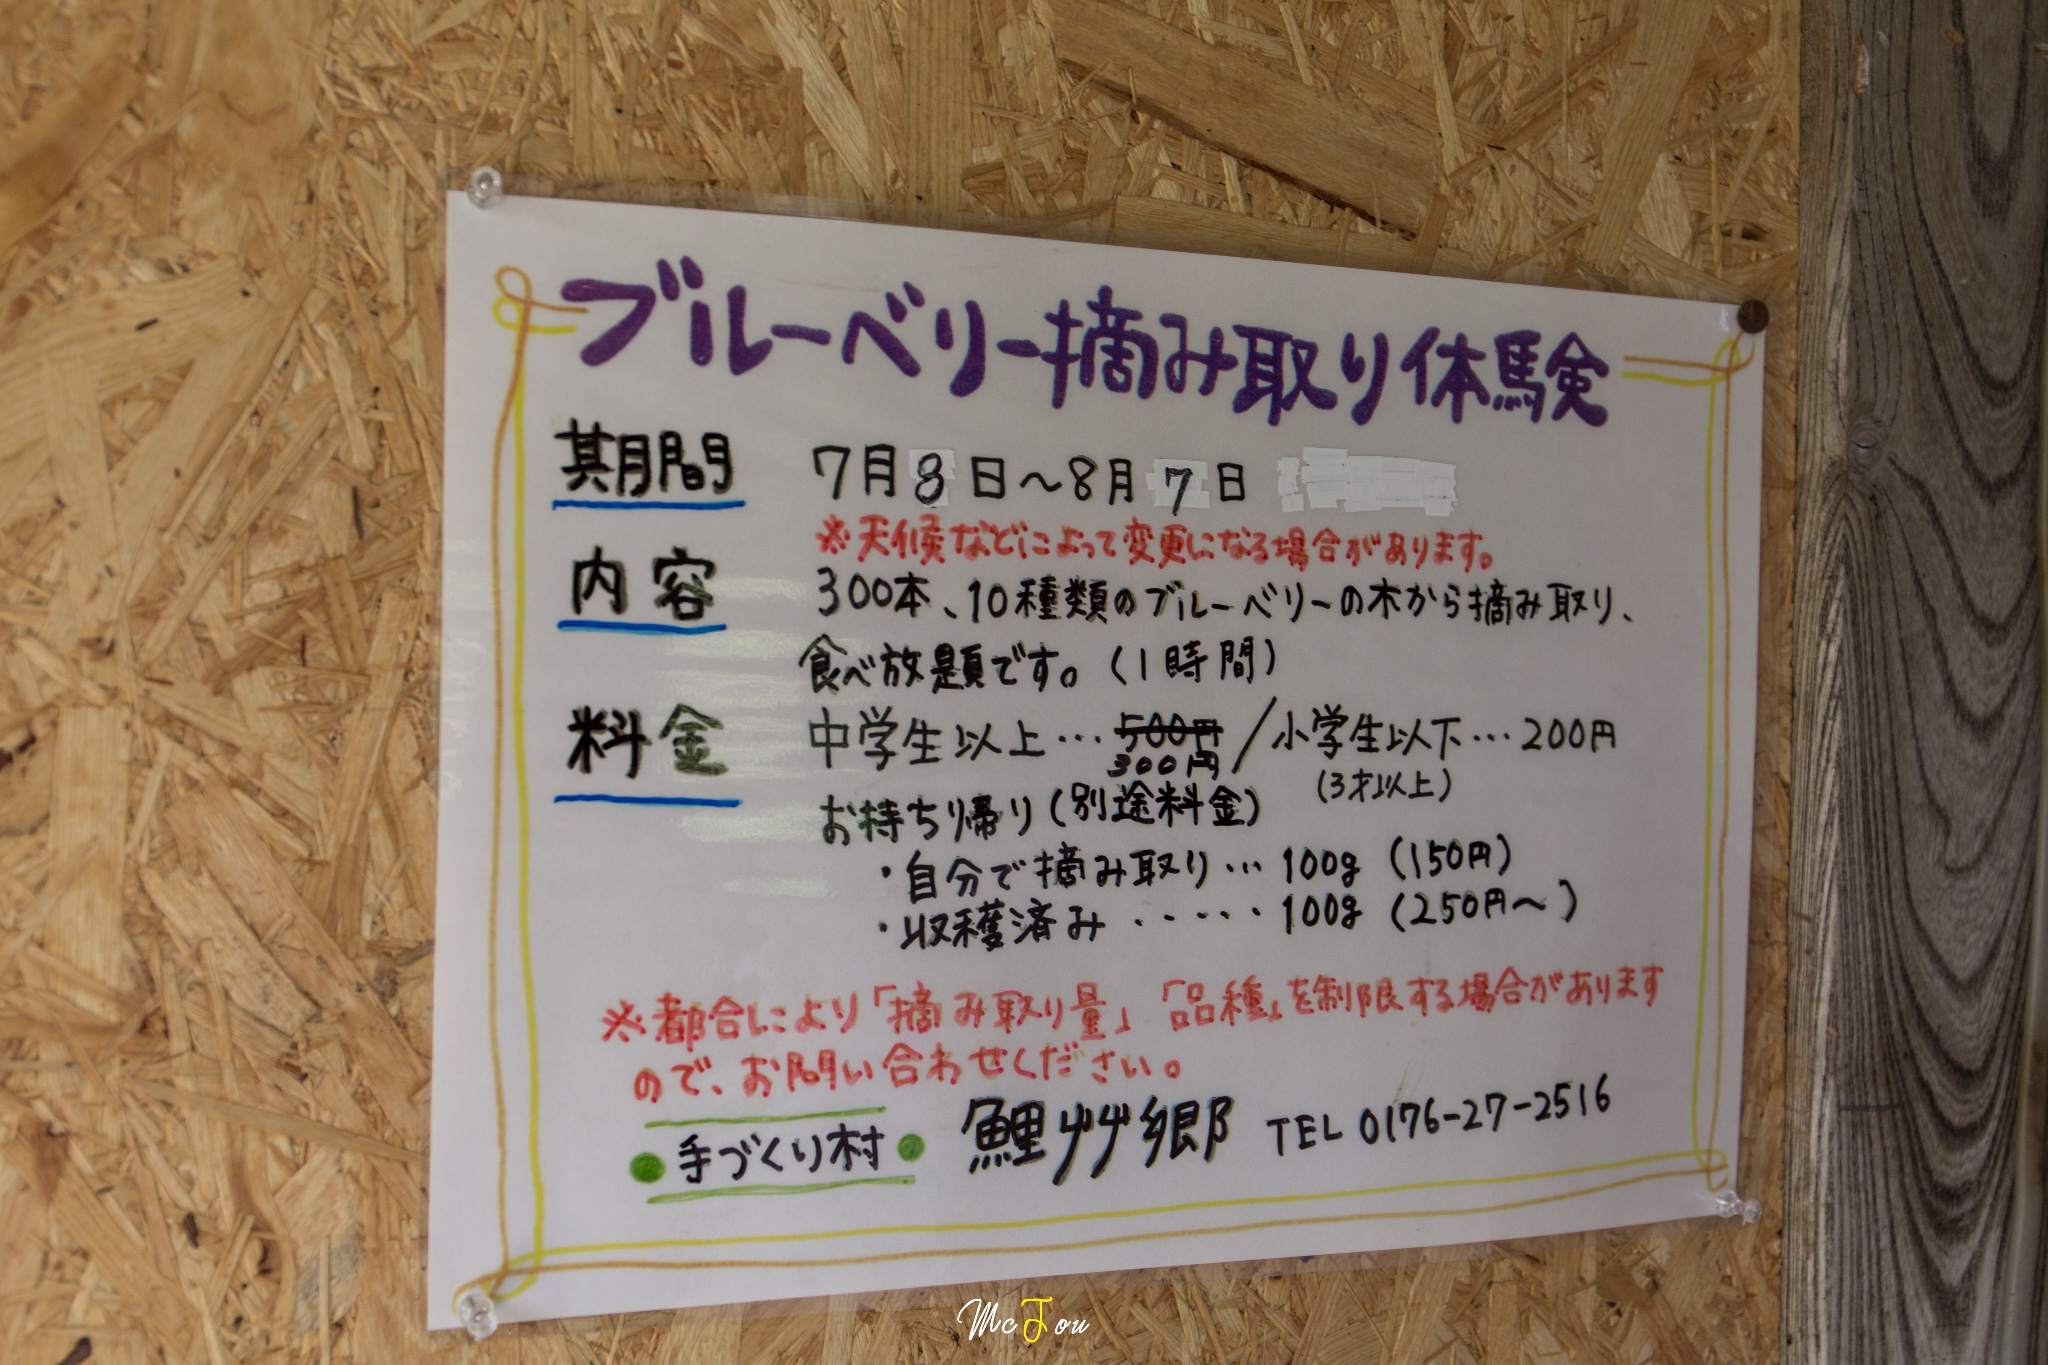 ブルーベリー摘み取り体験
期間 7月8日～8月7日
※天候などによって変更になる場合があります。
内容 300本、10種類のブルーベリーの木から摘み取り、
食べ放題です。(1時間)
料金 中学生以上…500円/小学生以下…200円
300円 (3才以上)
お持ち帰り(別途料金)
・自分で摘み取り…100g (150円)
・収穫済み・・・・・100g (250円～)
※都合により「摘み取り量」「品種」を制限する場合があります
ので、お問い合わせください。
●手づくり村● 鯉艸郷 TEL 0176-27-2516
McTou